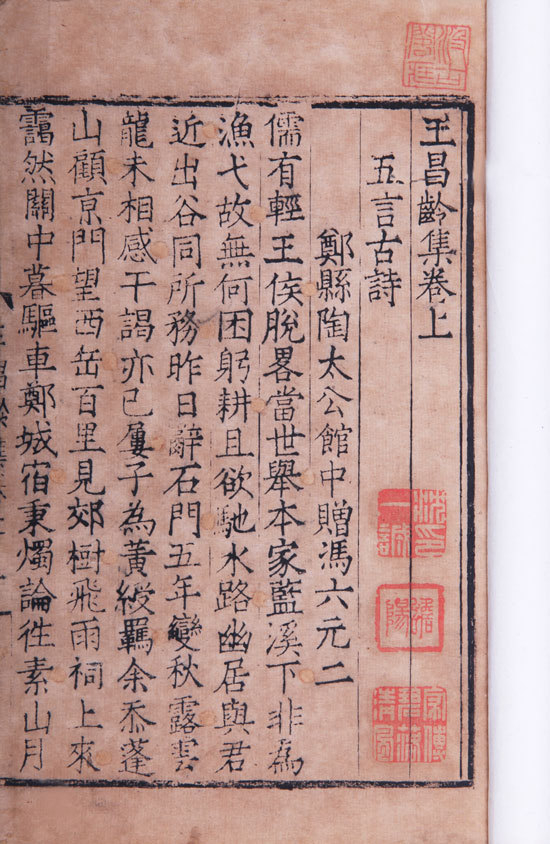 王昌齡集卷上
五言古詩
鄭縣陶太公館中贈馮六元二
儒有輕王侯脫畧當世舉本家藍溪下非為
漁弋故無何困躬耕且欲馳水路幽居與君
近出谷同所務昨日辭石門五年變秋露雲
龍未相感干謁亦已屢子為黃綬羈余忝蓬
山顧京門望西岳百里見郊樹飛雨祠上來
靄然關中暮驅車鄭城宿秉燭論徃素山月